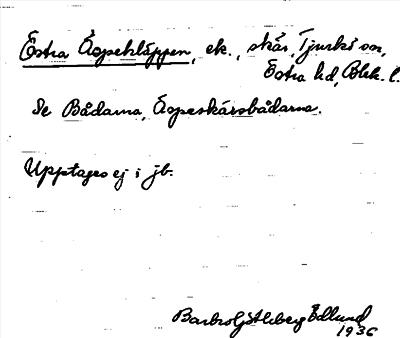 Östra Aspeklåppen, ek., skär, Tjurkö sn,
Östra hd, Blek. l.
Se Bådarna, Aspeskärsbådarna.
Upptages ej i jb.
Edlund
1936